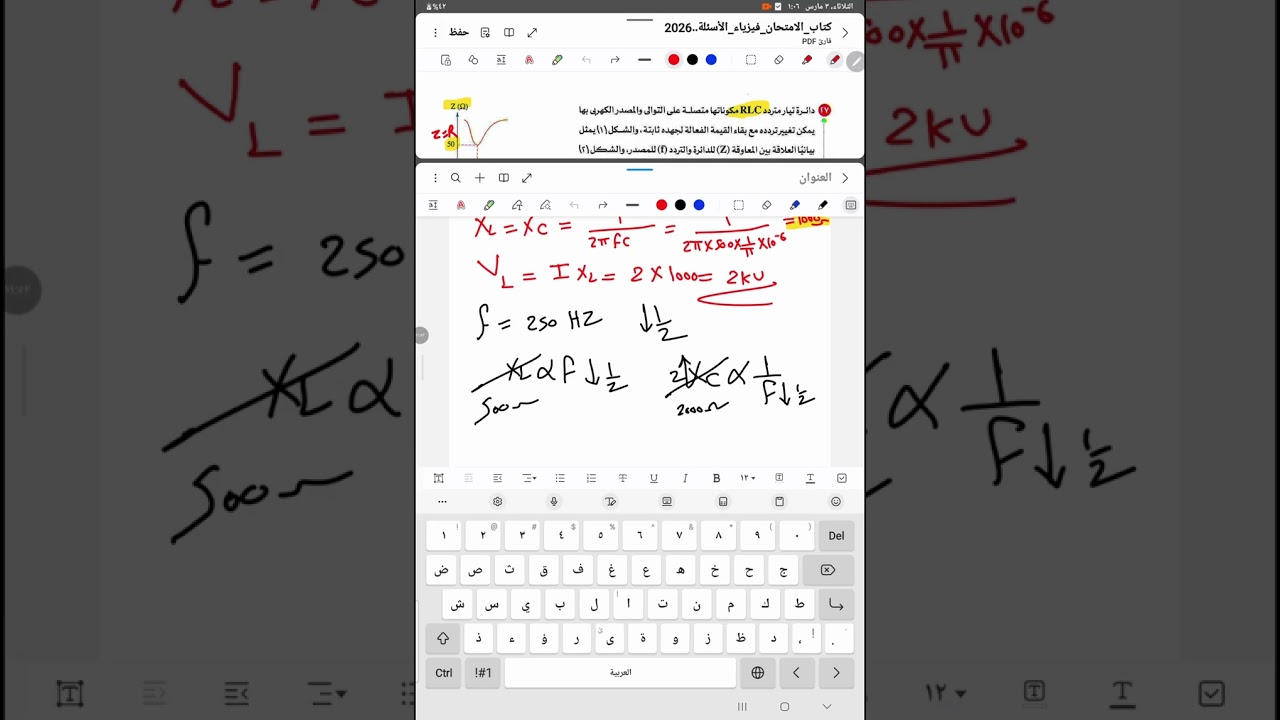 الثلاثاء، ٣ مارس ١:٠٦
٪٤٢
كتاب_الامتحان_فيزياء_الأسئلة..2026
قارئ PDF
حفظ
٢٧ دائرة تيار متردد RLC مكوناتها متصلة على التوالى والمصدر الكهربى بها
يمكن تغيير تردده مع بقاء القيمة الفعالة لجهده ثابتة، والشكل (١) يمثل
بيانيًا العلاقة بين المعاوقة (Z) للدائرة والتردد (f) للمصدر، والشكل (٢)
Z (Ω)
Z=R
50
العنوان
XL = XC = 1/2πfC = 1/2π×500×1/π×10-6 = 1000Ω
VL = I XL = 2 × 1000 = 2KV
f = 250 HZ ↓1/2
XL α F↓1/2 2↑XC α 1/F↓1/2
500Ω 2000Ω
B I U T ١٢
! @ # $ % ^ & * ( )
١ ٢ ٣ ٤ ٥ ٦ ٧ ٨ ٩ ٠ Del
ض ص ث ق ف غ ع ه خ ح ج
ش س ي ب ل ا ت ن م ك ط
ذ ء ؤ ر ى ة و ز ظ د ، .
Ctrl !#1 العربية